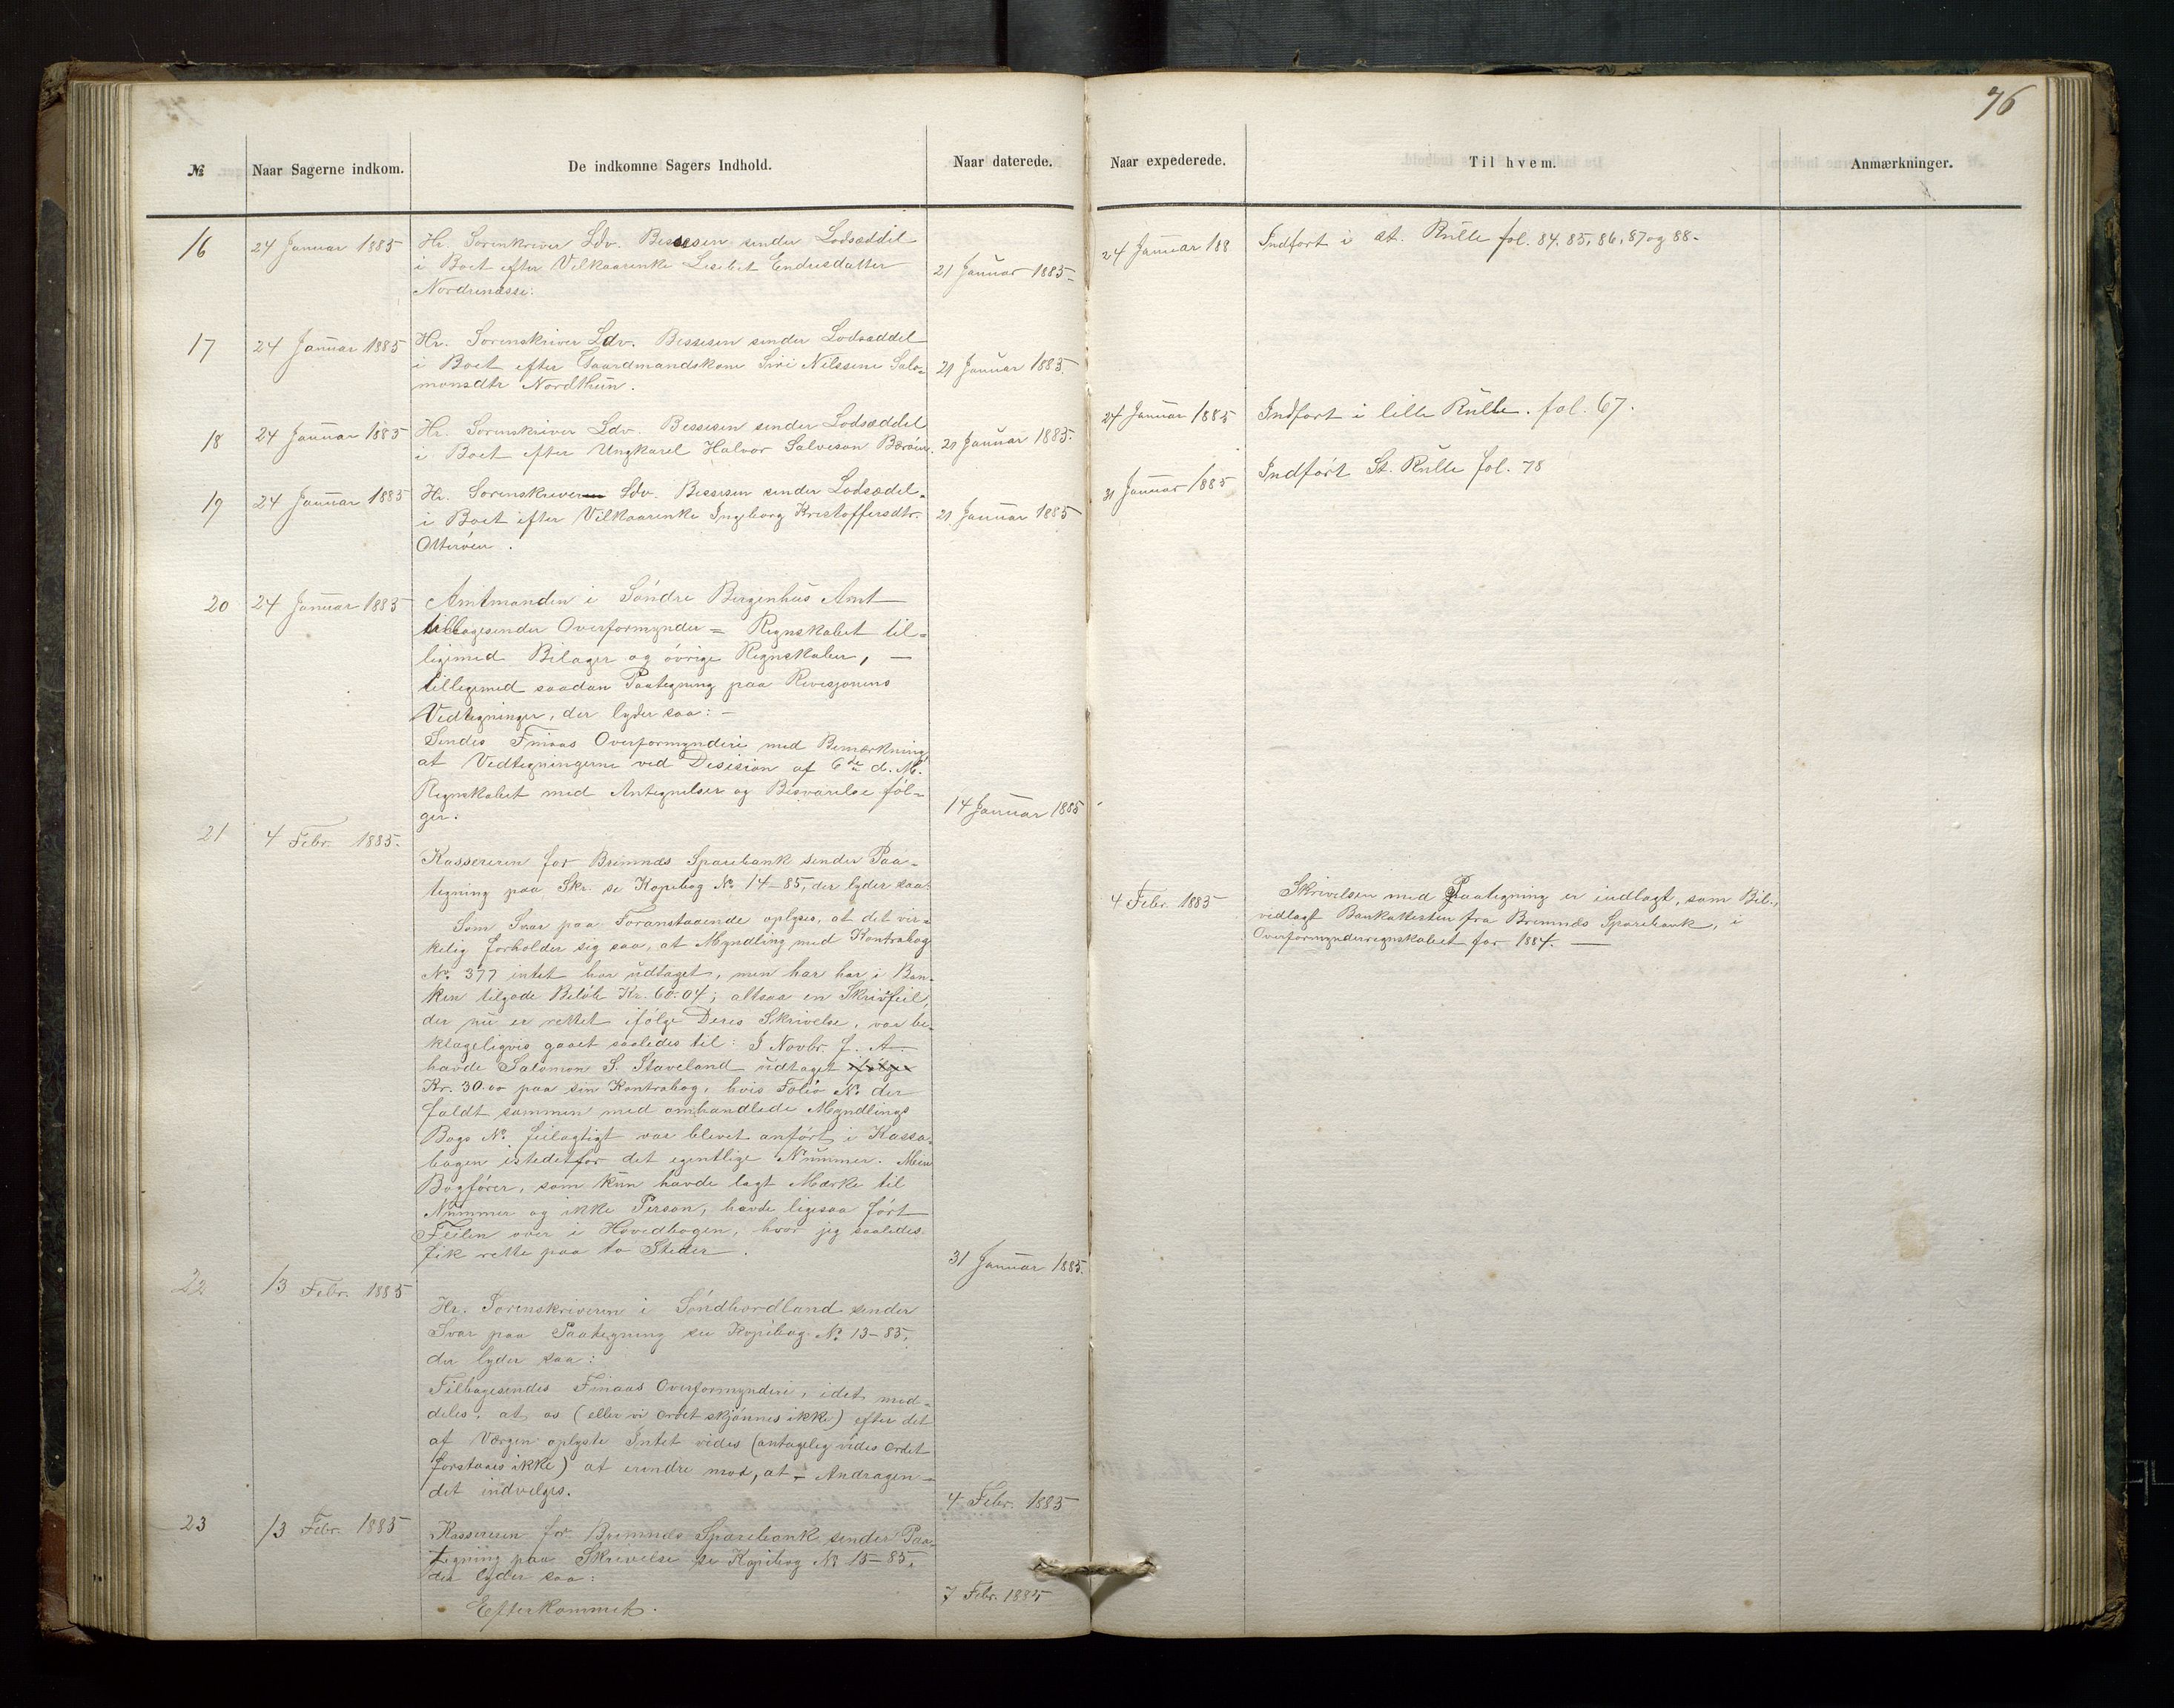 76
№ Naar Sagerne indkom. De indkomne Sagers Indhold. Naar daterede. Naar expederede. Til hvem. Anmærkninger.
16 24 Januar 1885 Hr. Sorenkriver Ldv. Bessesen sender Lodsæddel
i Boet efter Vilkaarenke Lisebet Endresdatter 21 Januar 1885
Nordrenæsse.
24 Januar 188 Indført i st. Rulle fol. 84. 85, 86, 87 og 88.
17 24 Januar 1885 Hr. Sorenskriver Ldv. Bessesen sender Lodsæddel
i Boet efter Gaardmandskone Siri Nilssine Salo= 21 Januar 1885.
monsdtr Nordthun.
24 Januar 1885 Indført i lille Rulle. fol. 67.
18 24 Januar 1885 Hr. Sorenskriver Ldv. Bessesen sender Lodsæddel
i Boet efter Ungkarel Halvor Salveson Bærøen. 21 Januar 1885.
31 Januar 1885 Indført St. Rulle fol. 78
19 24 Januar 1885 Hr. Sorenskriver Ldv. Bessesen sender Lodsædel.
i Boet efter Vilkaarenke Ingeborg Kristoffersdtr. 21 Januar 1885
Otterøen.
20 24 Januar 1885 Amtmanden i Søndre Bergenhus Amt
tilbagesender Overformynder = Regnskabet til=
ligemed Bilager og øvrige Regnskaber, —
tilligemed saadan Paategning paa Revisjonens
Vedtegninger, der lyder saa: —
Sendes Finaas Overformynderi med Bemærkning
at Vedtegningerne ved Desision af 6te d. M.
Regnskabet med Antegnelser og Besvarelse føl=
ger. 14 Januar 1885
21 4 Febr. 1885.
Kassereren for Bremnes Sparebank sender Paa-
tegning paa Skr. se Kopibog No 14–85, der lyder saa:
Som Svar paa Foranstaaende oplyses, at det vir=
kelig forholder sig saa, at Myndling med Kontrabog
No. 377 intet har udtaget, men har har i Ban-
ken tilgode Beløb Kr. 60.04; altsaa en Skrivfeil,
der nu er rettet ifølge Deres Skrivelse, var be-
klageligvis gaaet saaledes til: I Novbr. f. A.
havde Salomon S. Staveland udtaget ifølge
Kr. 30.00 paa sin Kontrabog, hvis Folio No. der
faldt sammen med omhandlede Myndlings
Bogs No. feilagtigt var blevet anført i Kassa-
bogen istedetfor det egentlige Nummer. Min
Bogfører, som kun havde lagt Mærke til
Nummer og ikke Person, havde ligesaa ført
Feilen over i Hovedbogen, hvor jeg saaledes
fik rette paa to Steder. 31 Januar 1885.
4 Febr. 1885 Skrivelsen med Paategning er indlagt, som Bil.,
vedlagt Bankattesten fra Bremnes Sparebank, i
Overformynderregnskabet for 1884. —
22 13 Febr. 1885
Hr. Sorenskriveren i Søndhordland sender
Svar paa Paategning see Kopibog No. 13–85,
der lyder saa:
Tilbagesendes Finaas Overformynderi, idet med-
deles, at os (eller vi ordet skjønnes ikke) efter det
af Værgen oplyste Intet vides (antagelig vides ordet
forstaaes ikke) at erindre mod, at – Andragen-
det indvelges. 4 Febr. 1885
23 13 Febr. 1885 Kassereren for Bremnes Sparebank sender Paa-
tegning paa Skrivelse se Kopibog No 15–85,
der lyder saa:
Efterkommet. 7 Febr. 1885